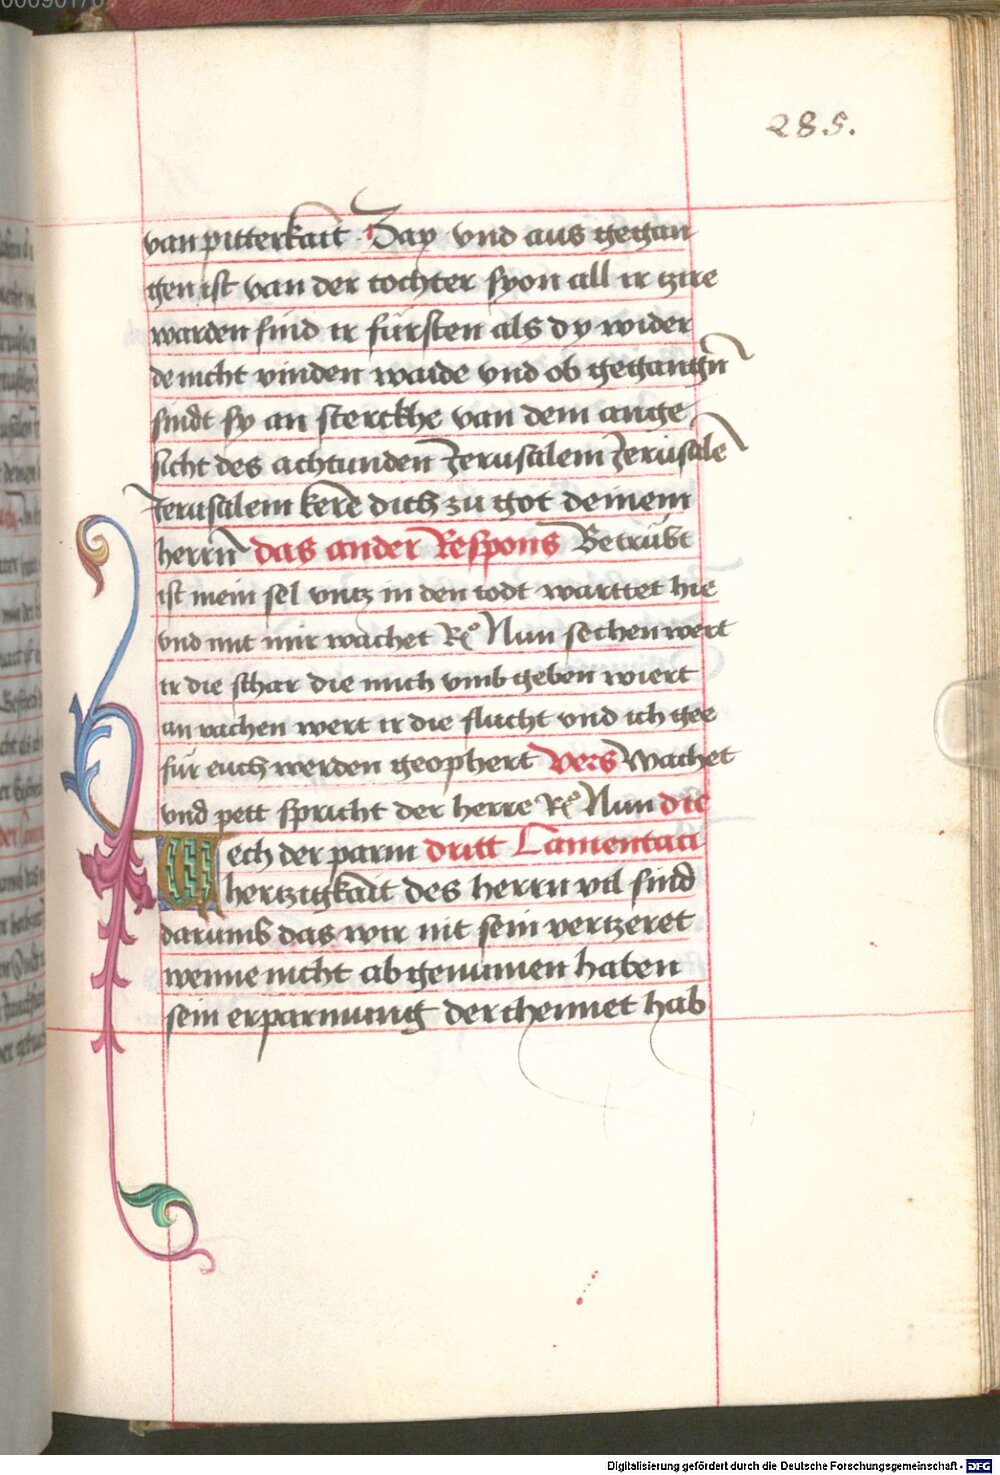 285.
van pitterkait · Zay vnd aus gegan
gen ist van der tochter syon all ir zire
warden sind ir fürsten als dy wider
de nicht vinden waide vnd ob gegangn̄
sindt sy an sterckhe van dem ange
sicht des achtunden Jerusalem Jerusalē
Jerusalem kere dich zu got deinem
herrn das ander Respons Betrübt
ist mein sel vntz in den todt warttet hie
vnd mit mir wachet R̊ Nun sechen wert
ir die schar die mich vmb geben wiert
an vachen wert ir die flucht vnd ich gee
für euch werden geophert vers Wachet
vnd pett spricht der herre R̊ Nun die
Wech der parm dritt Lamentaci
hertzigkait des herrn vil sind
darumb das wir nit sein vertzeret
wenne nicht ab genumen haben
sein erparmung der chennet hab
Digitalisierung gefördert durch die Deutsche Forschungsgemeinschaft - DFG